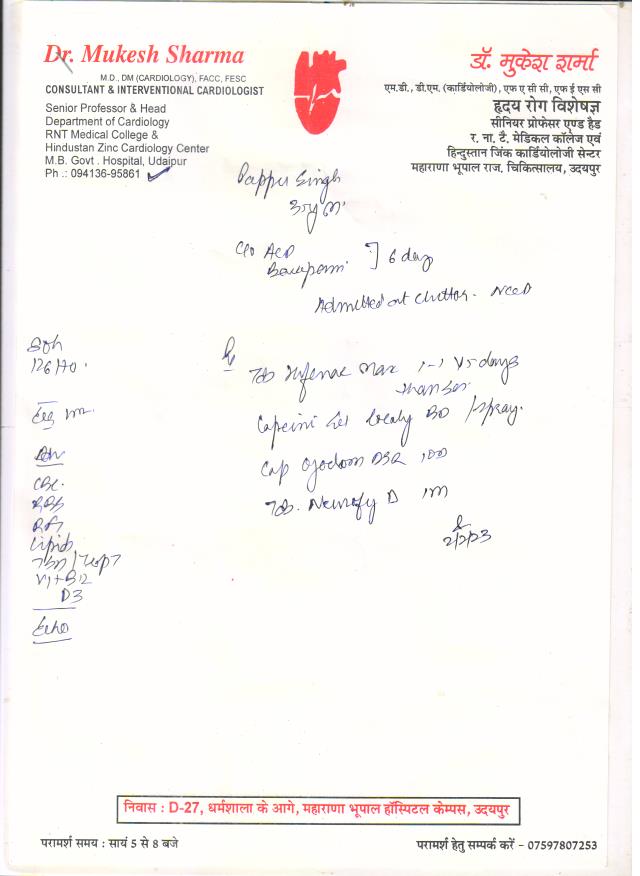 Dr. Mukesh Sharma
M.D., DM (CARDIOLOGY), FACC, FESC
CONSULTANT & INTERVENTIONAL CARDIOLOGIST
Senior Professor & Head
Department of Cardiology
RNT Medical College &
Hindustan Zinc Cardiology Center
M.B. Govt . Hospital, Udaipur
Ph .: 094136-95861
डॉ. मुकेश शर्मा
एम.डी., डी.एम. (कार्डियोलोजी), एफ ए सी सी, एफ ई एस सी
हृदय रोग विशेषज्ञ
सीनियर प्रोफेसर एण्ड हैड
र. ना. टै. मेडिकल कॉलेज एवं
हिन्दुस्तान जिंक कार्डियोलोजी सेन्टर
महाराणा भूपाल राज. चिकित्सालय, उदयपुर
Pappu Singh
C/o
6 day
Admitted at
Rx
Tab Max 1-1 x 5 days
locally BD /spray.
Cap DSR 1 OD
Tab. D
2/2/23
126/70.
CBC.
RBS
RFT
Lipid
Vit B12
D3
Echo
निवास : D-27, धर्मशाला के आगे, महाराणा भूपाल हॉस्पिटल केम्पस, उदयपुर
परामर्श समय : सायं 5 से 8 बजे
परामर्श हेतु सम्पर्क करें - 07597807253